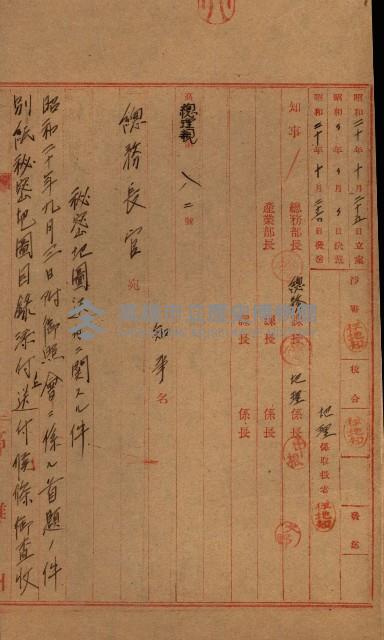 昭和二十年十月二五日立案
昭和 年 月 日決裁
昭和二十年十月二六日發送
淨書
校合
發送
地理係取扱者
知事
總務部長
產業部長
總務課長
課長
課長
地理係長
係長
係長
總理親
八二號
總務長官宛
知事名
秘密地圖
ニ關スル件
昭和二十年九月三日附御照會ニ係ル首題ノ件
別紙秘密地圖目錄添付ノ上送付候條御查收
高雄市立歷史博物館
高雄州